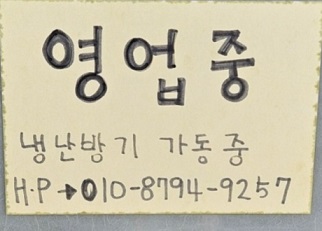 영업중
냉난방기 가동중
H·P→010-8794-9257